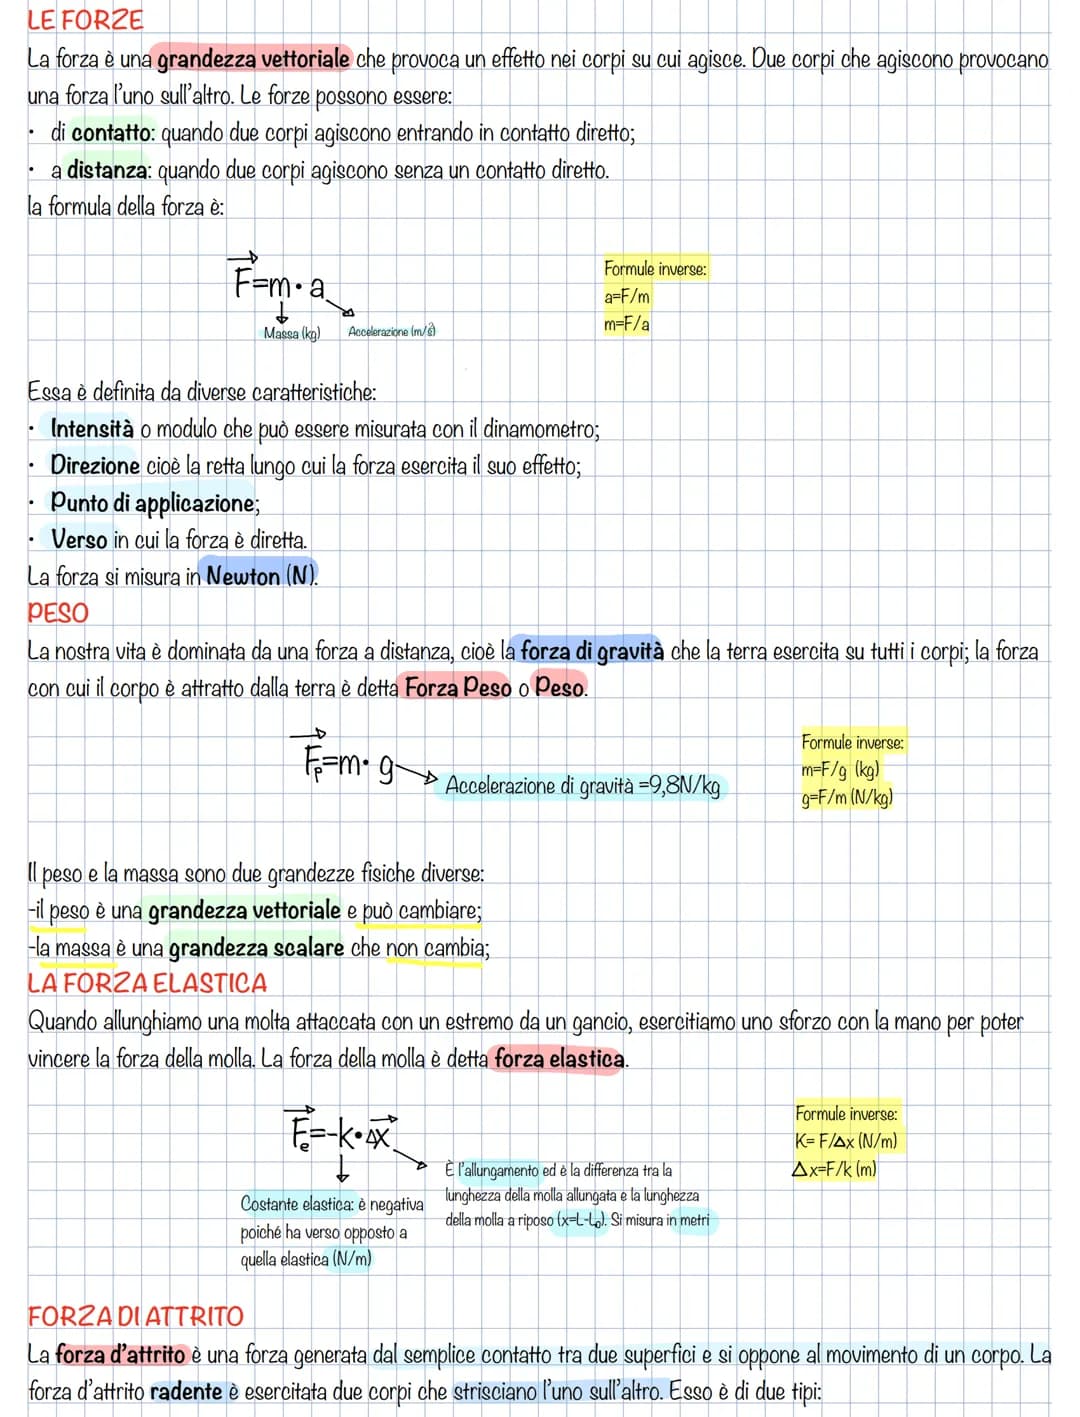 LE FORZE
La forza è una grandezza vettoriale che provoca un effetto nei corpi su cui agisce. Due corpi che agiscono provocano
una forza l'uno sull'altro. Le forze possono essere:
• di contatto: quando due corpi agiscono entrando in contatto diretto;
• a distanza: quando due corpi agiscono senza un contatto diretto.
la formula della forza è:
F=m・a
Massa (kg) Accelerazione (m/s²)
Formule inverse:
a=F/m
m=F/a
Essa è definita da diverse caratteristiche:
• Intensità o modulo che può essere misurata con il dinamometro;
• Direzione cioè la retta lungo cui la forza esercita il suo effetto;
• Punto di applicazione;
• Verso in cui la forza è diretta.
La forza si misura in Newton (N).
PESO
La nostra vita è dominata da una forza a distanza, cioè la forza di gravità che la terra esercita su tutti i corpi; la forza
con cui il corpo è attratto dalla terra è detta Forza Peso o Peso.
Fp=m・g
Accelerazione di gravità =9,8N/kg
Formule inverse:
m=F/g (kg)
g=F/m (N/kg)
Il peso e la massa sono due grandezze fisiche diverse:
-il peso è una grandezza vettoriale e può cambiare;
-la massa è una grandezza scalare che non cambia;
LA FORZA ELASTICA
Quando allunghiamo una molta attaccata con un estremo da un gancio, esercitiamo uno sforzo con la mano per poter
vincere la forza della molla. La forza della molla è detta forza elastica.
Fe=-k•Δx
Costante elastica: è negativa
poiché ha verso opposto a
quella elastica (N/m)
È l'allungamento ed è la differenza tra la
lunghezza della molla allungata e la lunghezza
della molla a riposo (x=L-L₀). Si misura in metri
Formule inverse:
K= F/Δx (N/m)
Δx=F/k (m)
FORZA DI ATTRITO
La forza d'attrito è una forza generata dal semplice contatto tra due superfici e si oppone al movimento di un corpo. La
forza d'attrito radente è esercitata due corpi che strisciano l'uno sull'altro. Esso è di due tipi: